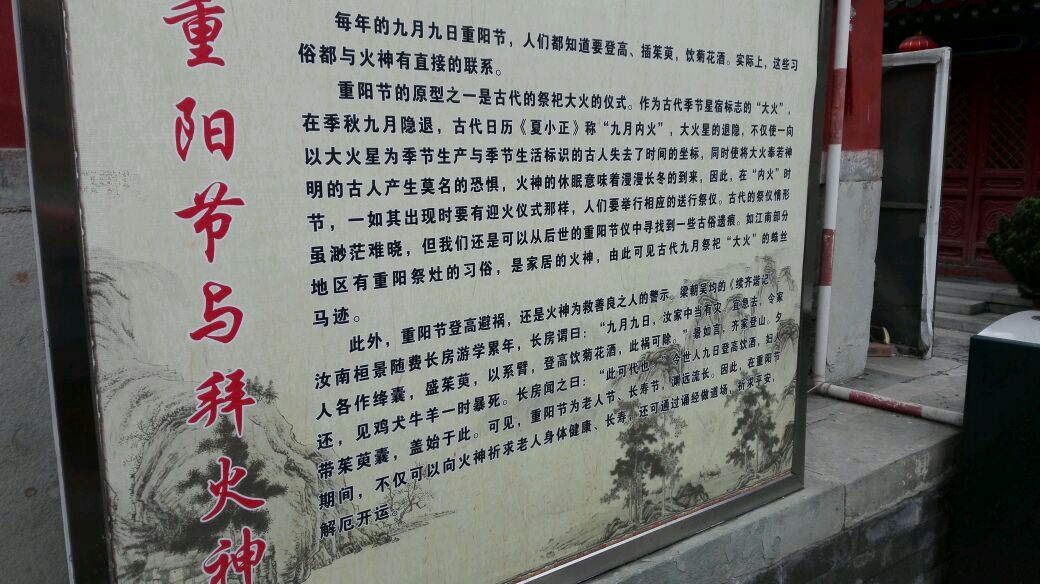 重阳节与拜火神
每年的九月九日重阳节，人们都知道要登高、插茱萸，饮菊花酒。实际上，这些习
俗都与火神有直接的联系。
重阳节的原型之一是古代的祭祀大火的仪式。作为古代季节星宿标志的“大火”，
在季秋九月隐退，古代日历《夏小正》称“九月内火”，大火星的退隐，不仅使一向
以大火星为季节生产与季节生活标识的古人失去了时间的坐标，同时使将大火奉若神
明的古人产生莫名的恐惧，火神的休眠意味着漫漫长冬的到来，因此，在“内火”时
节，一如其出现时要有迎火仪式那样，人们要举行相应的送行祭仪。古代的祭仪情形
虽渺茫难晓，但我们还是可以从后世的重阳节仪中寻找到一些古俗遗痕。如江南部分
地区有重阳祭灶的习俗，是家居的火神，由此可见古代九月祭祀“大火”的蛛丝
马迹。
此外，重阳节登高避祸，还是火神为救善良之人的警示。梁朝吴均的《续齐谐记》
汝南桓景随费长房游学累年，长房谓曰：“九月九日，汝家中当有灾，宜急去，令家
人各作绛囊，盛茱萸，以系臂，登高饮菊花酒，此祸可除。”景如言，齐家登山。夕
还，见鸡犬牛羊一时暴死。长房闻之曰：“此可代也”今世人九日登高饮酒，妇人
带茱萸囊，盖始于此。可见，重阳节为老人节、长寿节，渊远流长。因此，在重阳节
期间，不仅可以向火神祈求老人身体健康、长寿，还可通过诵经做道场，祈求平安，
解厄开运。